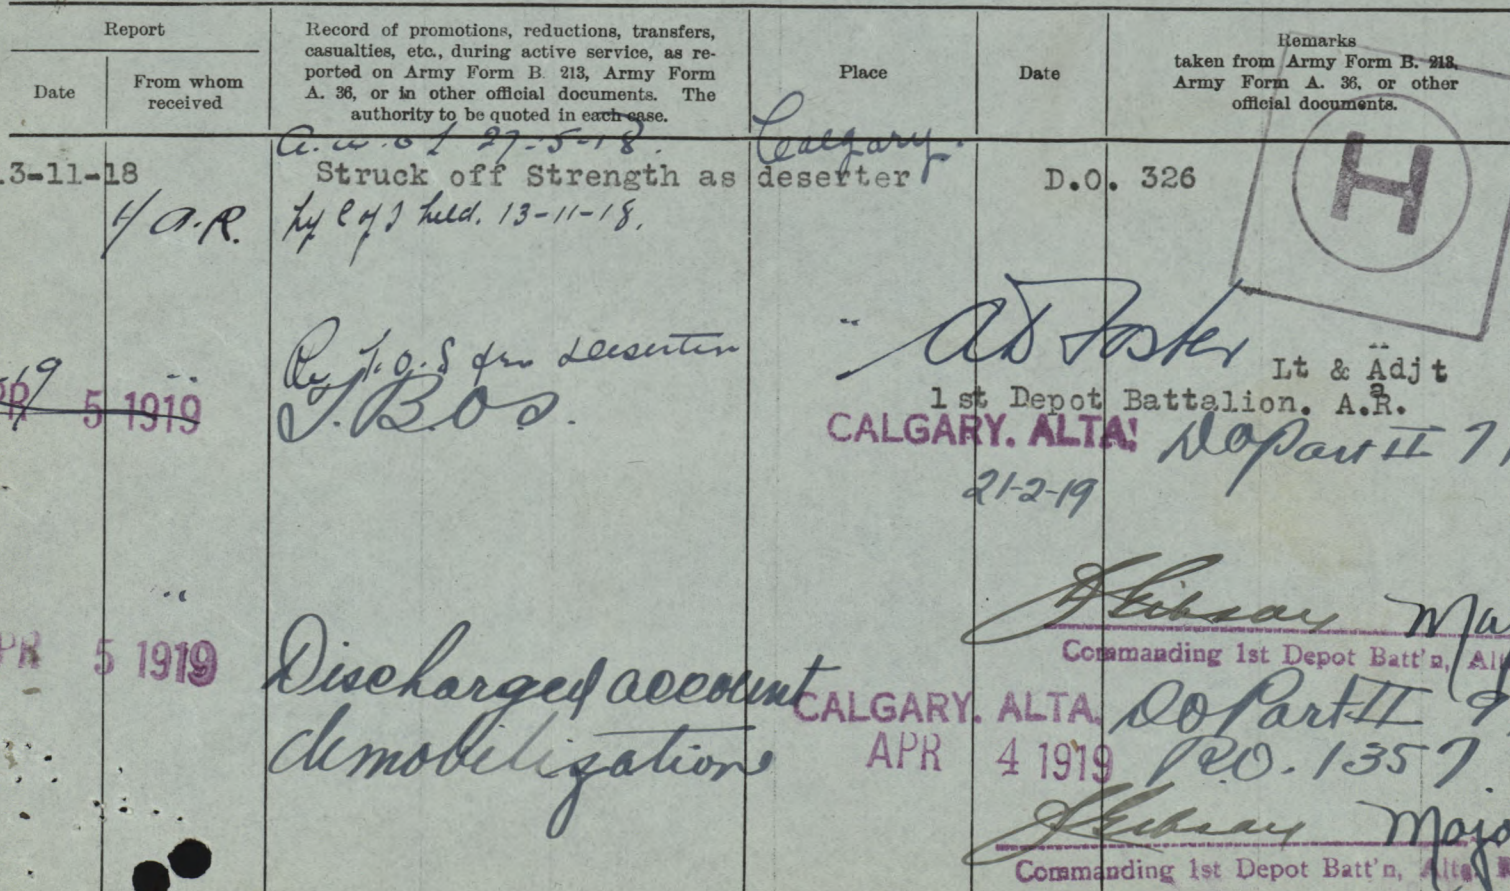 Report
Date
From whom
received
Record of promotions, reductions, transfers,
casualties, etc., during active service, as re-
ported on Army Form B. 213, Army Form
A. 36, or in other official documents. The
authority to be quoted in each case.
Place
Date
Remarks
taken from Army Form B. 213,
Army Form A. 36, or other
official documents.
H
a.w.o.l 27-5-18. Calgary.
13-11-18 Struck off Strength as deserter D.O. 326
1/A.R. by C of I held. 13-11-18.
A D Foster
Lt & Adjt
1st Depot Battalion. A.R.
T.O.S from desertion
APR 5 1919
CALGARY. ALTA.
DO Part II
21-2-19
Gibson Maj
Commanding 1st Depot Batt'n, Alt
APR 5 1919 Discharged account
demobilization
CALGARY. ALTA. DO Part II 9
APR 4 1919 R.O. 1357
Gibson Majo
Commanding 1st Depot Batt'n, Alta.